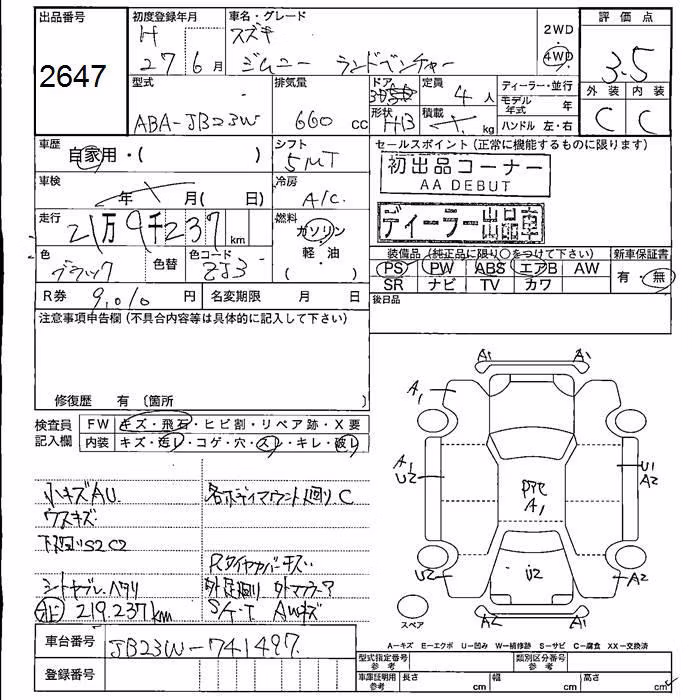 出品番号
2647
初度登録年月
H
27年6月
車名・グレード
スズキ
ジムニー ランドベンチャー
2WD
4WD
評価点
3.5
外装 内装
C C
型式
ABA-JB23W
排気量
660 cc
ドア
形状
HB
定員
4人
積載
kg
ディーラー・並行
モデル年式 年
ハンドル 左・右
車歴
自家用・( )
シフト
5MT
セールスポイント(正常に機能するものに限ります)
初出品コーナー
AA DEBUT
ディーラー出品車
車検
年 月( 日)
冷房
A/C
走行
21万9千237 km
燃料
ガソリン
軽・油
( )
色
ブラック
色替
色コード
ZJ3
装備品(純正品に限り○をつけて下さい)
PS PW ABS エアB AW
SR ナビ TV カワ
新車保証書
有・無
R券 9,010円
名変期限 月 日
後日品
注意事項申告欄(不具合内容等は具体的に記入して下さい)
修復歴 有 〔箇所
検査員記入欄
FW キズ・飛石・ヒビ割・リペア跡・X要
内装 キズ・汚レ・コゲ・穴・スレ・キレ・破レ
小キズAU
各ボディマウント廻りC
ウスキズ
下廻りS2C2
Rタイヤカバーキズ
シートヤブレ、ヘタリ
外足廻り 外マフラー
219.237km
S/T AWキズ
車台番号
JB23W-741497
登録番号
A1
A1
A1
A1
U2
U1
A2
A1
U2
U2
A2
A2
A1
スペア
A-キズ E-エクボ U-凹み W-補修跡 S-サビ C-腐食 XX-交換済
型式指定番号 参考
類別区分番号 参考
車庫証明用 参考
長さ cm
幅 cm
高さ cm